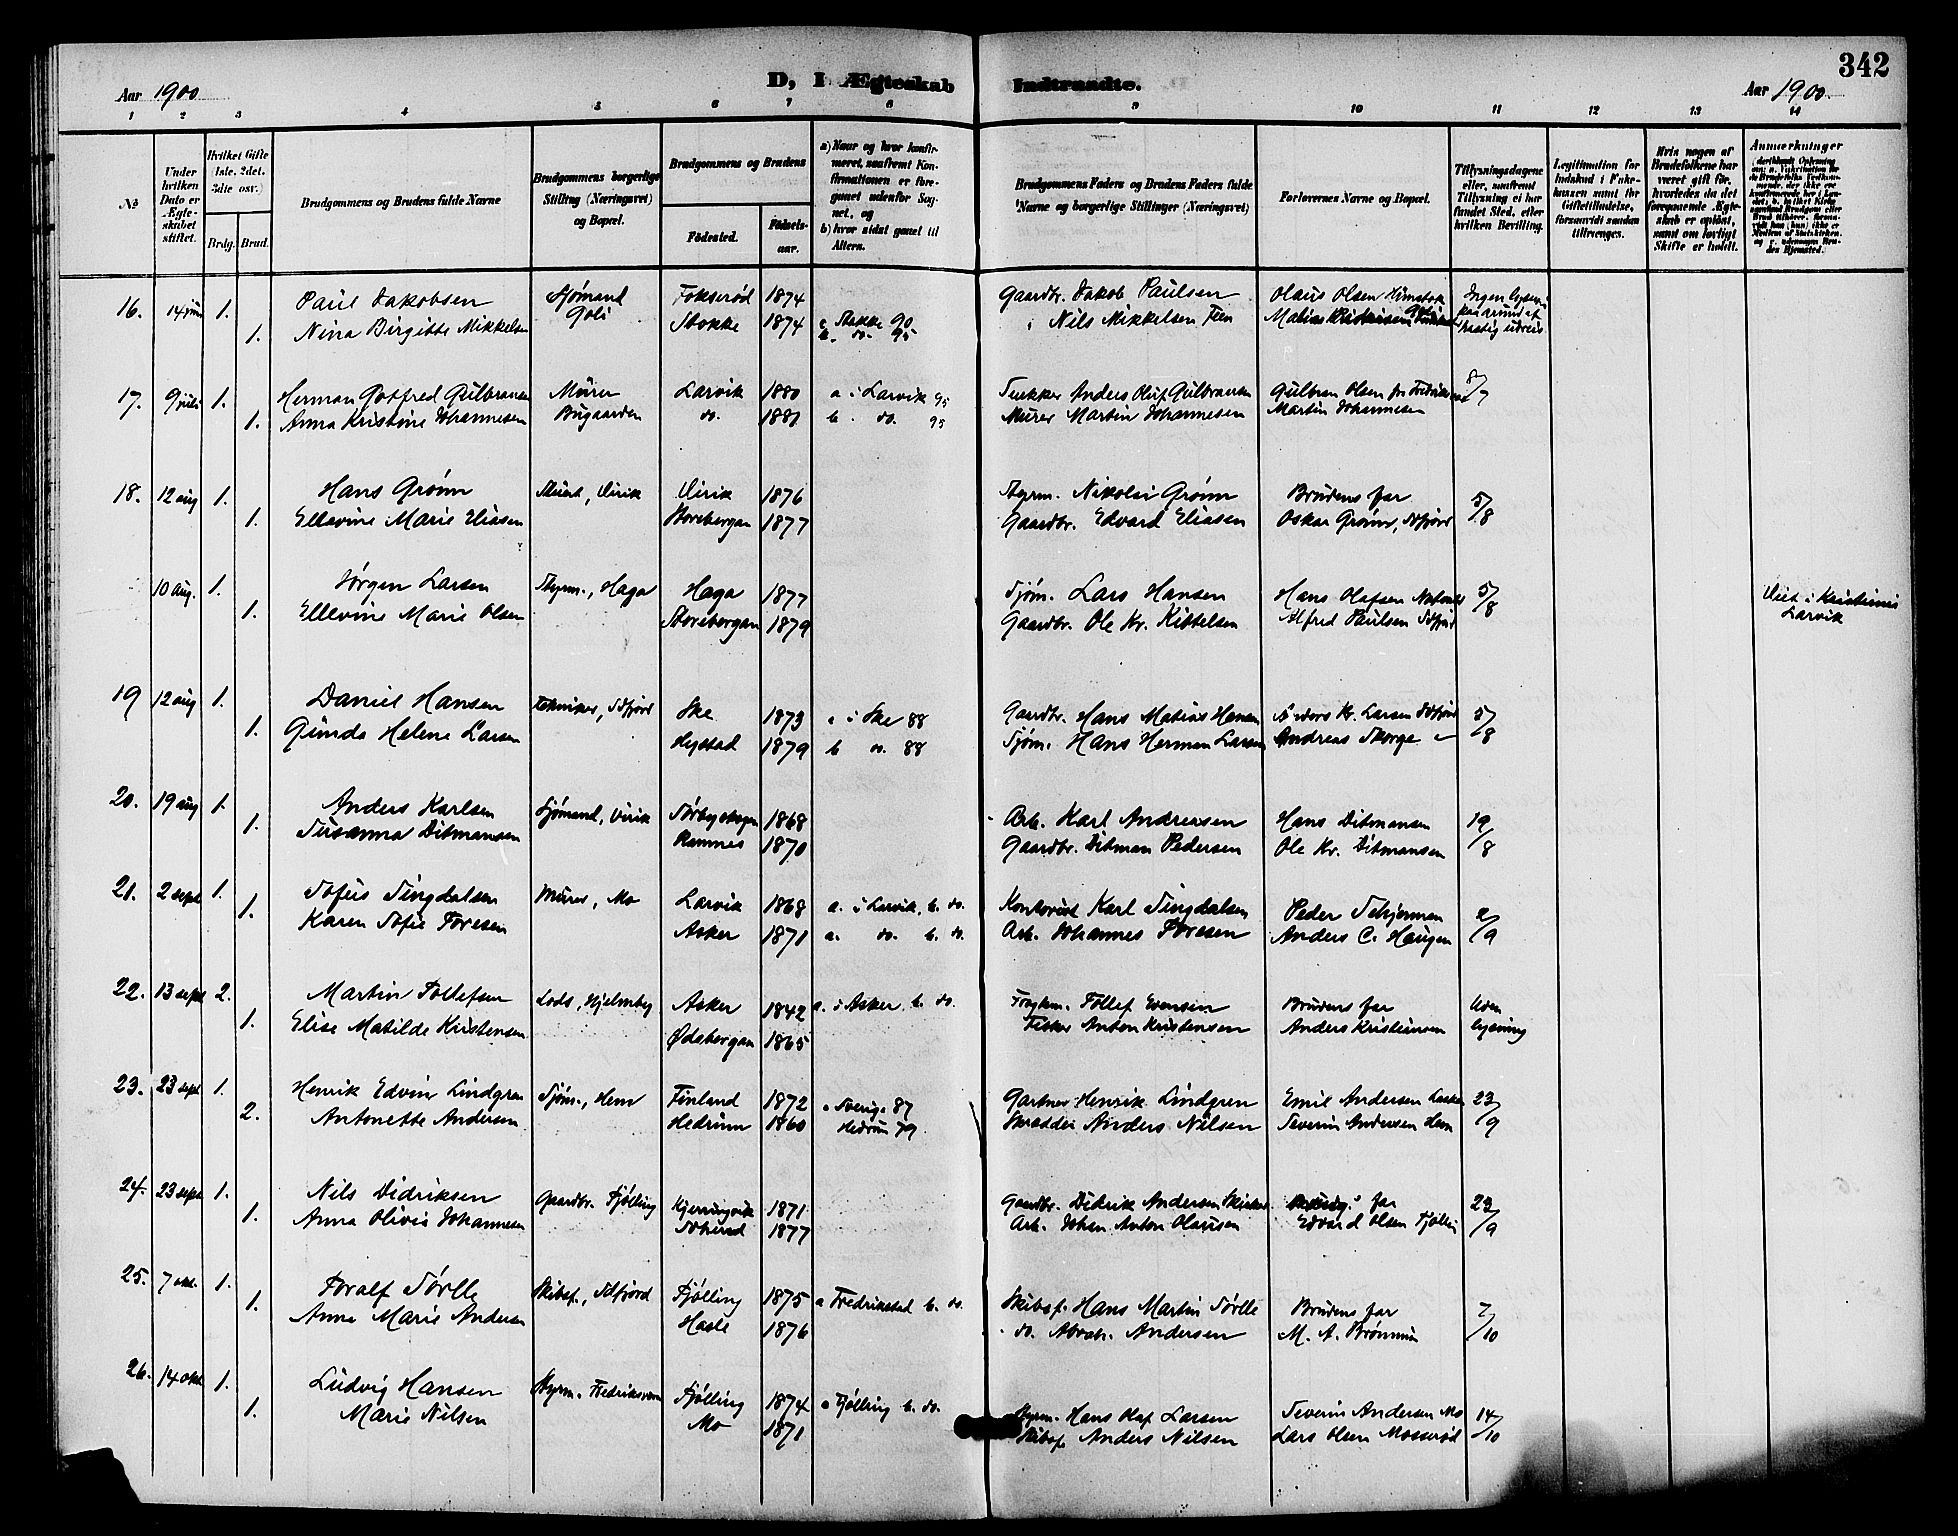 342
D, I Ægteskab Indtraadte.
Aar 1900
Aar 1900.
1 2 3 4 5 6 7 8 9 10 11 12 13 14
No
Under hvilken Dato er Ægteskabet stiftet.
Hvilket Gifte (1ste. 2det. 3die osv.)
Brdg. Brud.
Brudgommens og Brudens fulde Navne
Brudgommens borgerlige Stilling (Næringsvei) og Bopæl.
Brudgommens og Brudens
Fødested.
Fødselsaar.
a) Naar og hvor konfirmeret, saafremt Konfirmationen er foregaaet udenfor Sognet, og
b) hvor sidst gaaet til Alters.
Brudgommens Faders og Brudens Faders fulde Navne og borgerlige Stillinger (Næringsvei)
Forlovernes Navne og Bopæl.
Tillysningsdagene eller, saafremt Tillysning ei har fundet Sted, efter hvilken Bevilling.
Legitimation for Indskud i Enkekassen samt for Giftetilladelse, forsaavidt saadan tiltrænges.
Hvis nogen af Brudefolkene har været gift før, hvorledes da det foregaaende Ægteskab er opløst, samt om lovligt Skifte er holdt.
Anmærkninger
16. 14 juni 1. Paul Jakobsen Sjømand Fokserød 1874 Gaardbr. Jakob Paulsen Olaus Olsen Himstok Ingen lysn.
1. Nina Birgitte Mikkelsen Goli Stokke 1874 a. Stokke 90 Nils Mikkelsen Fen
b. do. 95 hastig udreis
17. 9 juli 1. Herman Gotfred Gulbransen Murer Larvik 1880 a i Larvik 95 Anders Oluf Gulbransen Gulbran Olsen 8/7
1. Anna Kristine Johannesen Bugaarden do. 1881 b. do. 95 Murer Martin Johannesen Martin Johannesen
18. 12 aug 1. Hans Grønn Stuert, Virik Virik 1876 Styrm. Nikolai Grønn Brudens far 5/8
1. Ellevine Marie Eliasen Storebergan 1877 Gaardbr. Edvard Eliasen Oskar Grønn, Sdfjord
10 aug. 1. Jørgen Larsen Styrm., Haga Haga 1877 Sjøm. Lars Hansen Hans Olafsen 5/8 Viet i Kristiania
1. Ellevine Marie Olsen Storebergan 1879 Gaardbr. Ole Kr. Kittelsen Alfred Paulsen Sdfjord Larvik
19 12 aug 1. Daniel Hansen Tekniker, Sdfjord Ske 1873 a i Ske 88 Gaardbr. Hans Matias Hansen Anders Kr. Larsen Sdfjord 5/8
1. Gunda Helene Larsen Hystad 1879 b do. 88 Sjøm. Hans Herman Larsen Andreas Skorge
20. 19 aug 1. Anders Karlsen Sjømand, Virik Sørbyskogen 1868 Arb. Karl Andreasen Hans Ditmansen 19/8
1. Susanna Ditmansen Ramnes 1870 Gaardbr. Ditman Pedersen Ole Kr. Ditmansen
21. 2 sept 1. Sofus Tingdalsen Murer, Mo Larvik 1868 a. i Larvik, b. do. Kontorist Karl Tingdalsen Peder 2/9
1. Karen Sofie Toresen Asker 1871 a. do. b. do. Arb. Johannes Toresen Anders C. Haugen
22. 13 sept 2. Martin Tollefsen Lods, Hjelmby Asker 1842 a. i Asker b. do. Tollef Evensen Brudens far Uden
1. Elise Matilde Kristensen Ødsbergan 1865 Fisker Anton Kristensen Anders Kristensen lysning
23. 23 sept 1. Henrik Edvin Lindgren Sjøm., Hem Finland 1872 a Sverige 87 Gartner Henrik Lindgren Emil Andersen 23/9
2. Antonette Andersen Hedrum 1860 Hedrum 79 Skrædder Anders Nilsen Severin Andersen Hem
24. 23 sept 1. Nils Didriksen Gaardbr. Tjølling Kjerringvik 1871 Gaardbr. Didrik Andersen far 23/9
1. Anna Olivia Johannesen 1877 Arb. Johan Anton Olausen Edvard Olsen Tjølling
25. 7 okt. 1. Toralf Sørlle Skibsf., Sdfjord Tjølling 1875 a Fredrikstad b. do. Skibsf. Hans Martin Sørlle Brudens far 7/10
1. Anna Marie Andersen Hasle 1876 do. Abrah. Andersen M. A. Brønnum
26. 14 okt. 1. Ludvig Hansen Styrm. Fredriksværn Tjølling 1874 a Tjølling b. do. Styrm. Hans Olaf Larsen Severin Andersen Mo 14/10
1. Marie Nilsen Mo 1871 Skibsf. Anders Nilsen Lars Olsen Mosserød